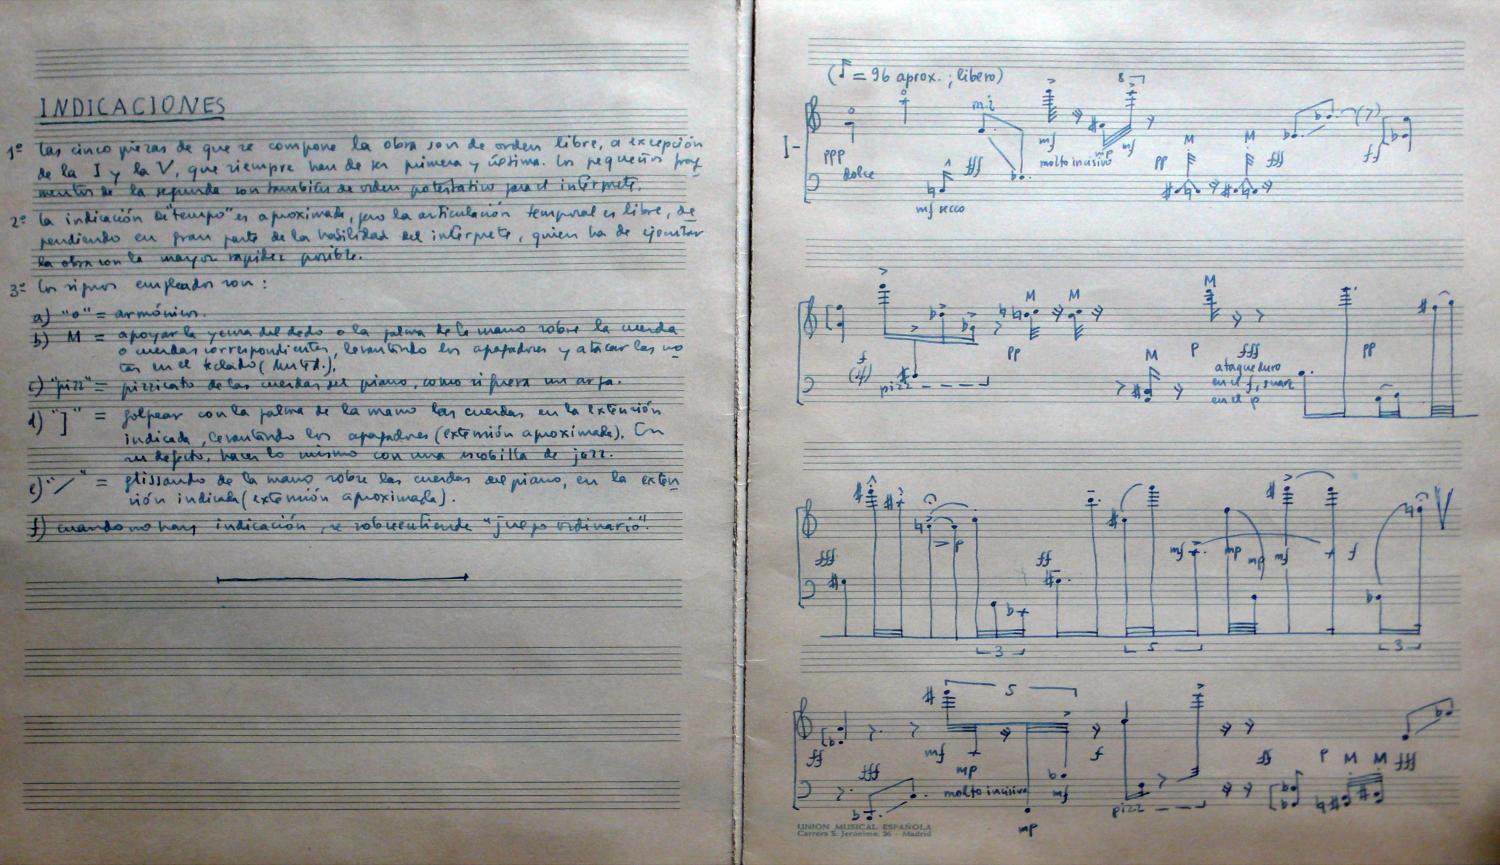 INDICACIONES
1º Las cinco piezas de que se compone la obra son de orden libre, a excepción
de la I y la V, que siempre han de ser primera y última. Los pequeños frag
mentos de la segunda son también de orden potestativo para el intérprete.
2º La indicación de "tempo" es aproximada, pero la articulación temporal es libre, de
pendiendo en gran parte de la habilidad del intérprete, quien ha de ejecutar
la obra con la mayor rapidez posible.
3º Los signos empleados son:
a) "o" = armónico.
b) M = apoyar la yema del dedo o la palma de la mano sobre la cuerda
o cuerdas correspondientes, levantando los apagadores y atacar las no
tas en el teclado
c) "pizz" = pizzicato de las cuerdas del piano, como si fuera un arpa.
d) "]" = golpear con la palma de la mano las cuerdas en la extensión
indicada, levantando los apagadores (extensión aproximada). En
su defecto, hacer lo mismo con una escobilla de jazz.
e) "/" = glissando de la mano sobre las cuerdas del piano, en la exten
sión indicada (extensión aproximada).
f) cuando no hay indicación, se sobreentiende "juego ordinario".
(♪ = 96 aprox.; libero)
I-
8
ppp
dolce
mf secco
fff
mf
molto incisivo
mp
mf
pp
M
M
fff
ff
f
(ff)
pizz
M
M
pp
M
M
p
fff
ataque duro
en el f, suave
en el p
pp
fff
p
ff
mf
mp
mp
mf
f
3
5
3
5
ff
fff
mf
mp
molto incisivo
mf
mp
f
pizz
ff
p
M
M
fff
UNION MUSICAL ESPAÑOLA
Carrera S. Jerónimo, 26 - Madrid